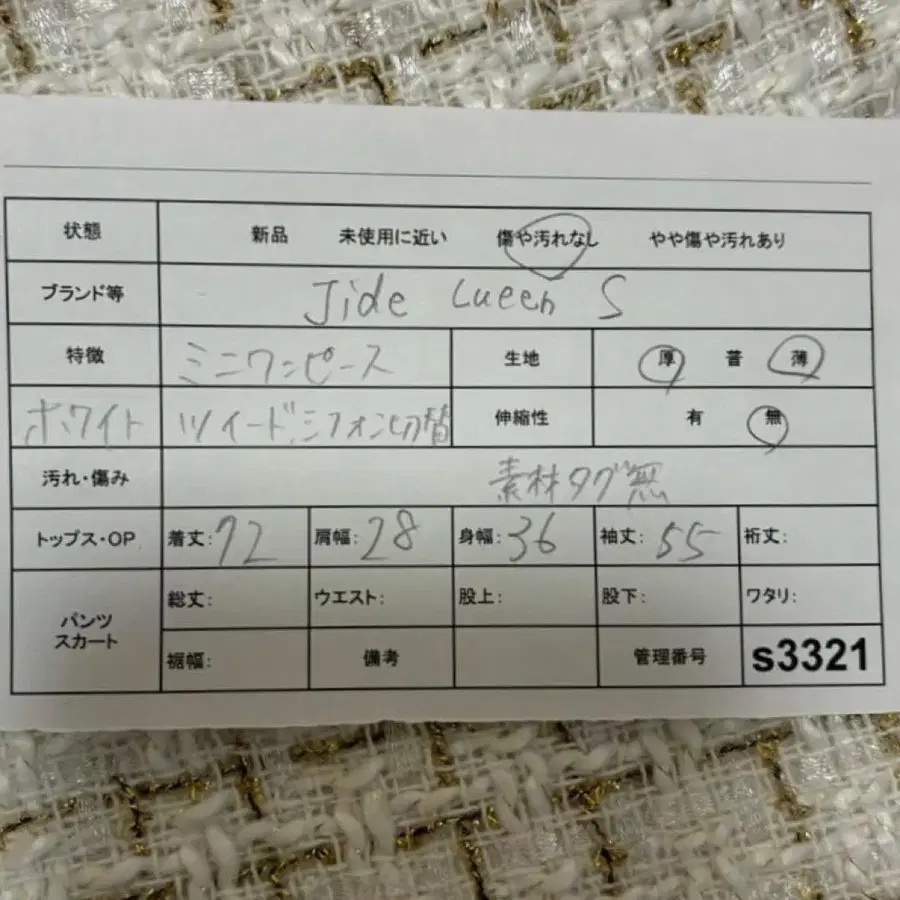 状態 新品 未使用に近い 傷や汚れなし やや傷や汚れあり
ブランド等 Jide Lueen S
特徴 ミニワンピース 生地 厚 普 薄
ホワイト ツイード、シフォン切替 伸縮性 有 無
汚れ・傷み 素材タグ無
トップス・OP 着丈:72 肩幅:28 身幅:36 袖丈:55 裄丈:
パンツ スカート 総丈: ウエスト: 股上: 股下: ワタリ:
裾幅: 備考 管理番号 s3321